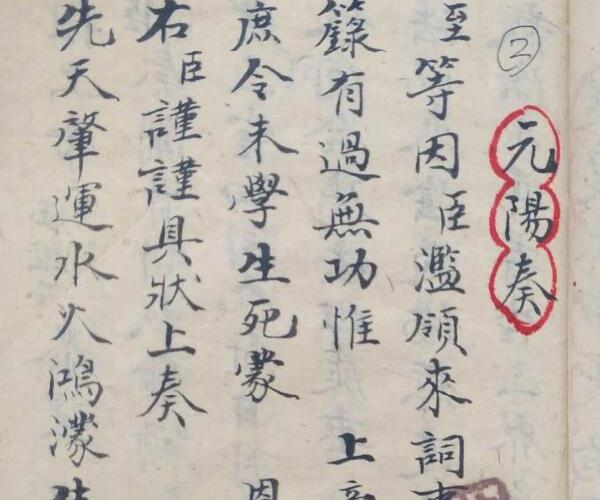 ②
元陽奏
至等因臣濫領來詞
籙有過無功惟 上
庶令未學生死蒙 恩
右臣謹謹具狀上奏
先天肇運水火鴻濛